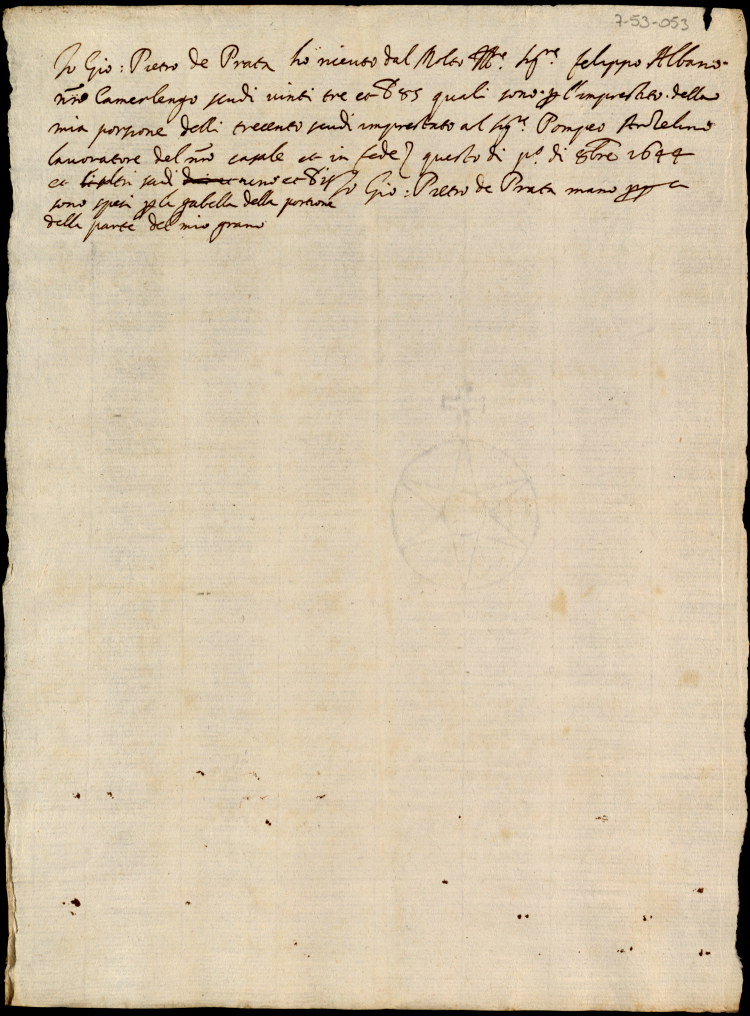 7-53-053
Io Gio: Pietro de Prata ho riceuto dal Molto Ill.re Sig.re Felippo Albano
nr̃o Camerlengo scudi vinti tre et 85 quali sono p l'imprestito della
mia portione delli trecento scudi imprestato al Sig.re Pompeo
lauoratore del nr̃o casale et in fede questo di p.o di 8bre 1644
et scudi et
Io Gio: Pietro de Prata mano pp a
sono spesi p la gabella della portione
della parte del mio grano